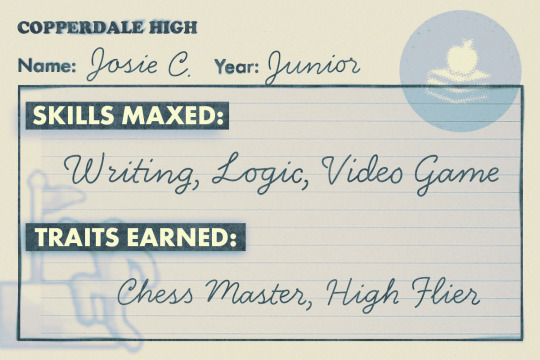 COPPERDALE HIGH
Name: Josie C. Year: Junior
SKILLS MAXED:
Writing, Logic, Video Game
TRAITS EARNED:
Chess Master, High Flier